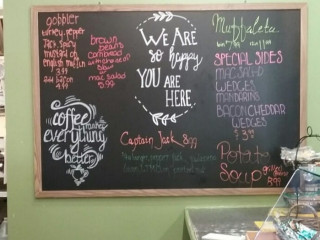 gobbler
turkey, pepper
Jack, spicy
mustard on
english muffin
3.99
add bacon
4.99
brown
beans
cornbread
mac salad
5.99
WE ARE
so happy
YOU ARE
HERE
coffee
makes
everything
better
Captain Jack 8.99
Muffaleta
SPECIAL SIDES
MAC SALAD
WEDGES
MANDARINS
BACON CHEDDAR
WEDGES
Potato
Soup
grilled
cheese
8.99